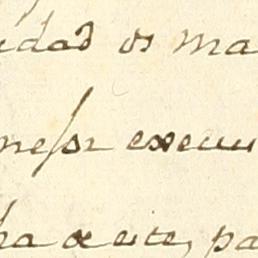 idad os ma
nesor execu
ha de este, pa